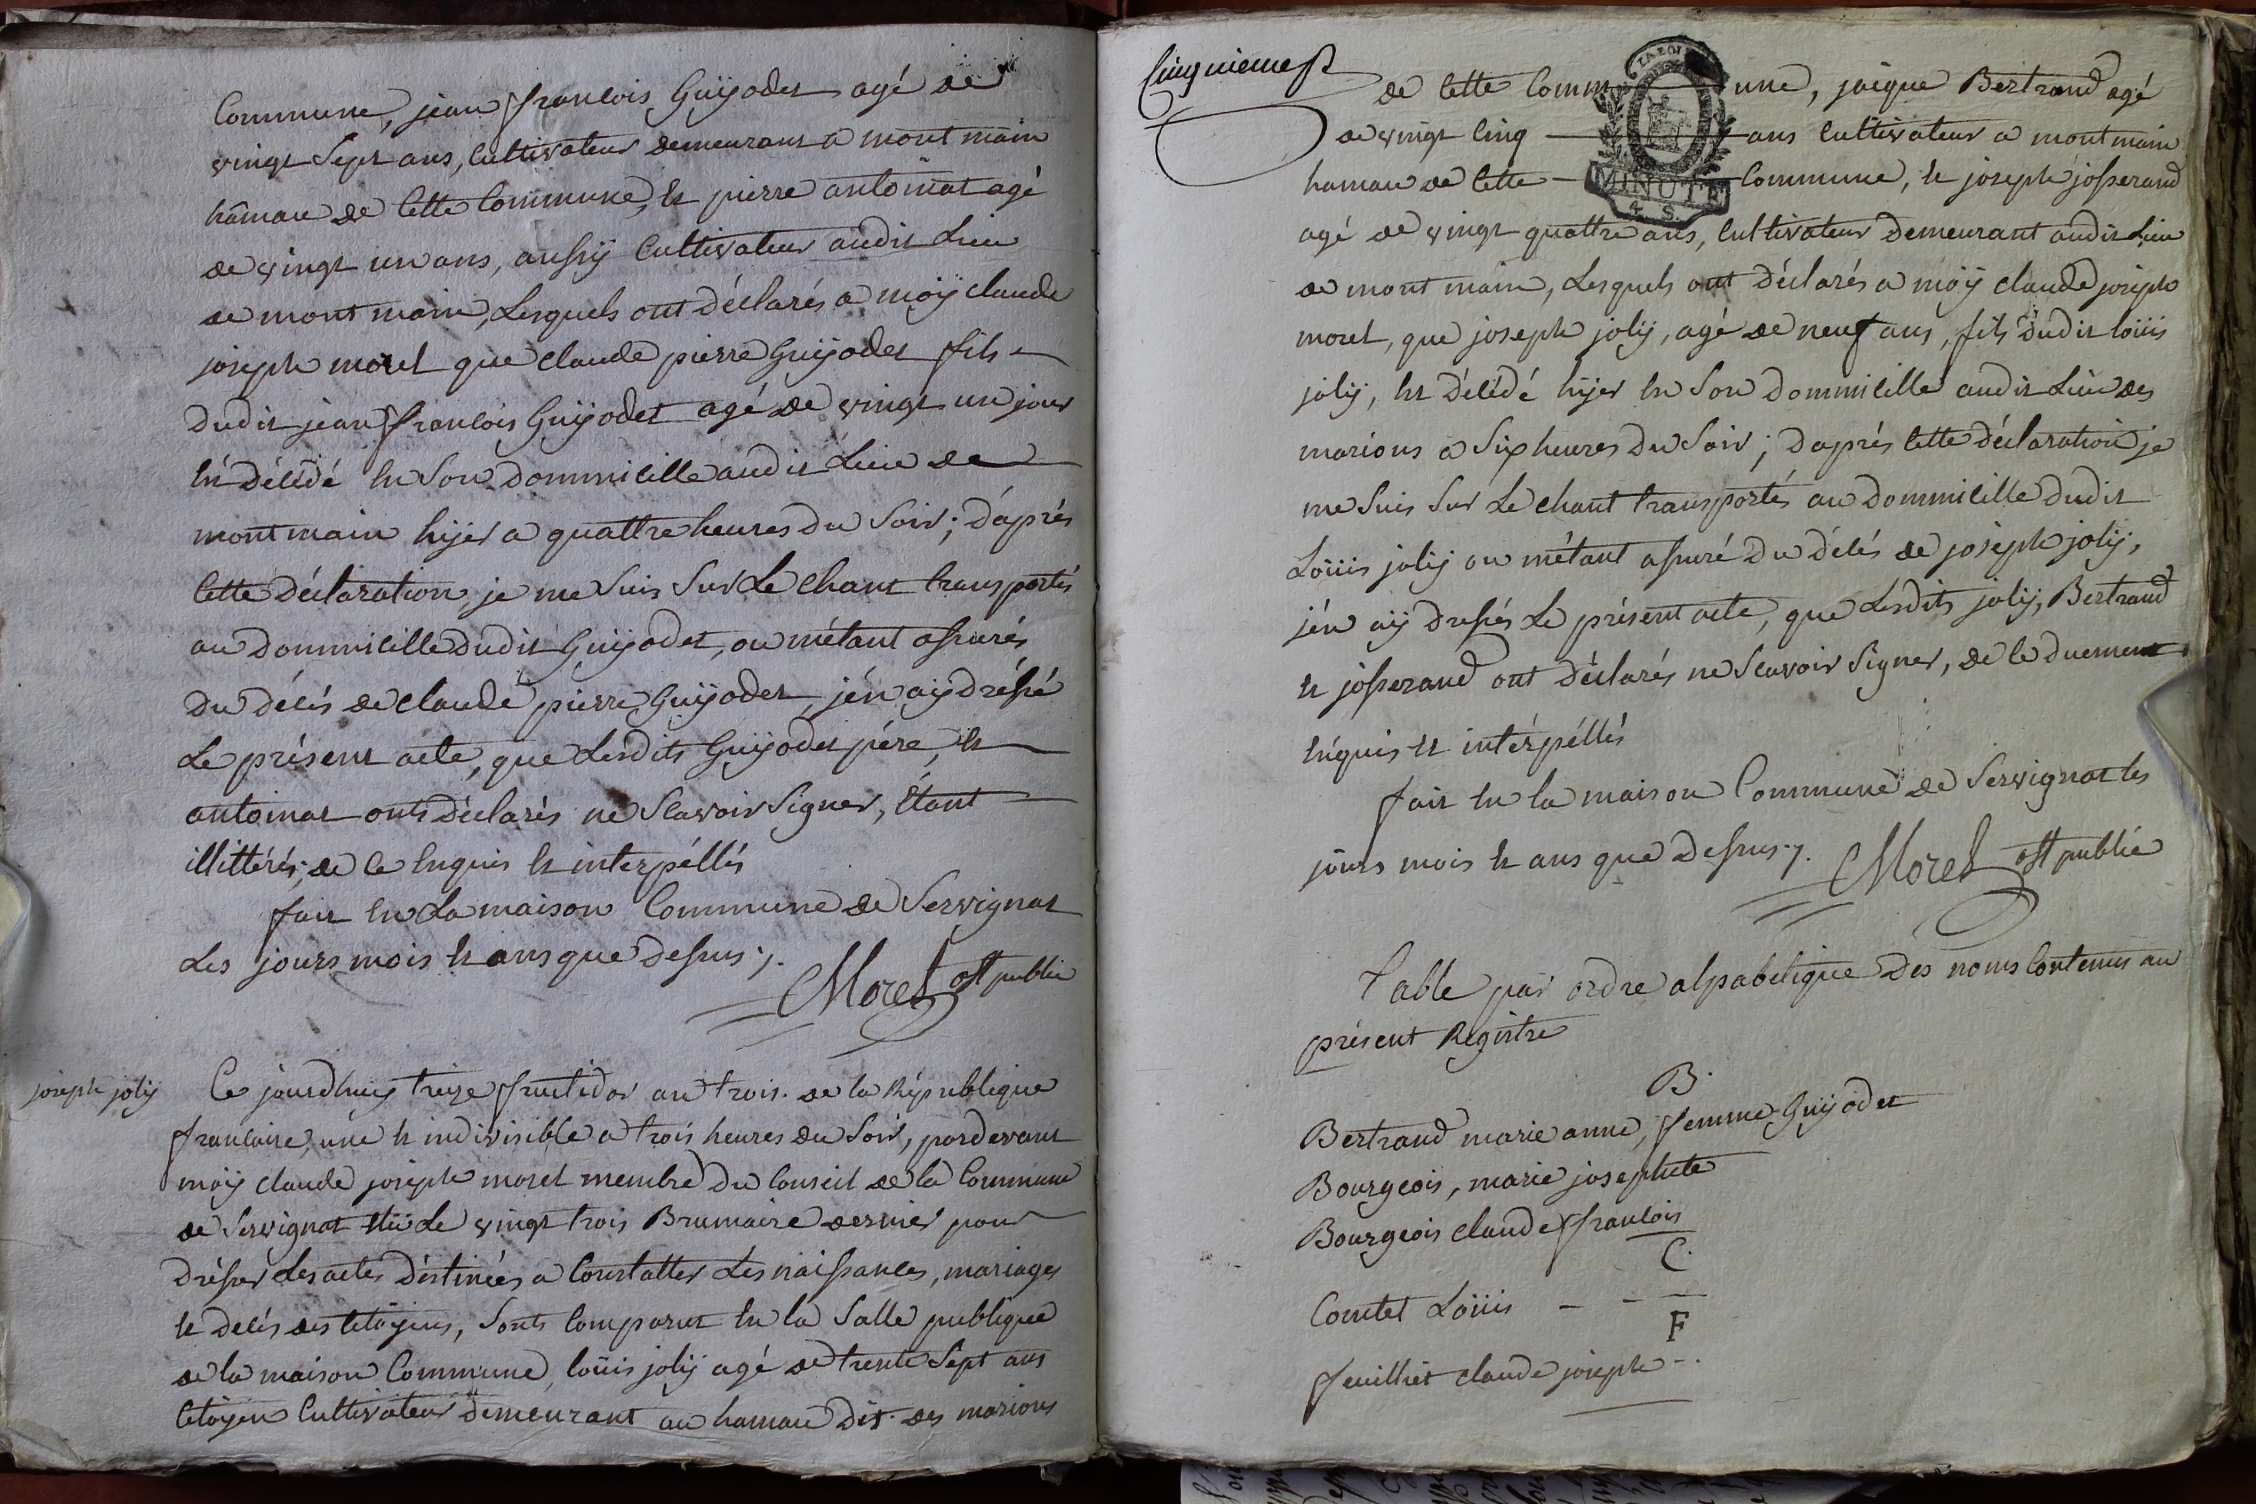 Commune, jean françois Guÿodet agé de
vingt Sept ans, Cultivateur demeurant a mont main
hâmau de Cette Commune, et pierre antoinat agé
de vingt un ans, aussÿ Cultivateur audit Lieu
de mont main, Lesquels ont déclarés a moÿ claude
joseph morel que claude pierre Guÿodet fils
dudit jean françois Guÿodet agé de vingt un jour
ét décédé en Son dommicille audit Lieu de
mont main hÿer a quattre heures du Soir ; d'aprés
Cette déclaration, je me Suis Sur Le Chant transportés
au dommicille dudit Guÿodet, ou métant assurés
du décés de claude pierre Guÿodet, jén aÿ dréssé
Le présent acte, que Lesdits Guÿodet pére, et
antoinat onts déclarés ne Scavoir Signer, Étant
illittérés, de ce enquis et interpéllés
fait en La maison Commune de Servignat
Les jours mois et ans que dessus ;.
Morel off public
joseph jolÿ
Ce jourdhuÿ treize fructidor an trois. de la République
francaise, une et indivisible a trois heures du Soir, pardevant
moÿ claude joseph morel membre du Conseil de la Commune
de Servignat élü Le vingt trois Brumaire dernier pour
drésser Les actes déstinées a Constatter Les naissances, mariages
et décés des Citoÿens, Sonts Comparut en la Salle publique
de la maison Commune, loüis jolÿ agé de trente Sept ans
Citoÿen Cultivateur demeurant au hamau dit. des marions
Cinquieme
de Cette Commune, jacque Bertrand agé
LA LOI
de vingt Cinq ans Cultivateur a mont main
hamau de Cette Commune, et joseph josserand
MINUTE
4 S.
agé de vingt quattre ans, Cultivateur demeurant audit Lieu
de mont main, Lesquels ont déclarés a moÿ claude joseph
morel, que joseph jolÿ, agé de neuf ans, fils dudit loüis
jolÿ, et décédé hÿer en Son dommicille audit Lieu des
marions a Six heures du Soir ; daprés Cette déclaration je
me Suis Sur Le chant transportés au dommicille dudit
Loüis jolÿ ou métant assuré du décés de joseph jolÿ,
jén aÿ dressés Le présent acte, que Lesdits jolÿ, Bertrand
et josserand ont déclarés ne Scavoir Signer, de Ce duement
enquis et intérpéllés
fait en la maison Commune de Servignat les
jours mois et ans que dessus ;. Morel off public
Table par ordre alpabetique des noms Contenus au
présent Registre
B.
Bertrand marie anne, femme Guÿodet
Bourgeois, marie josephete
Bourgeois claude françois
C.
Comtet Loüis
F
feuilliet claude joseph